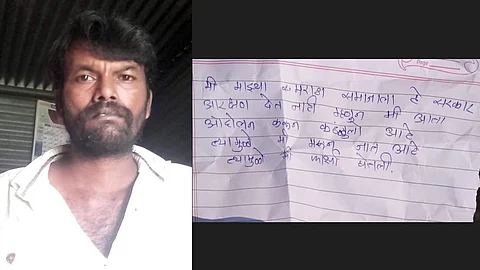 मी माझ्या मराठा समाजाला हे सरकार
आरक्षण देत नाही म्हणून मी आता
आंदोलन करून कंटाळलो आहे
त्यामुळे मी मरून जात आहे
त्यामुळे मी फाशी घेतली.